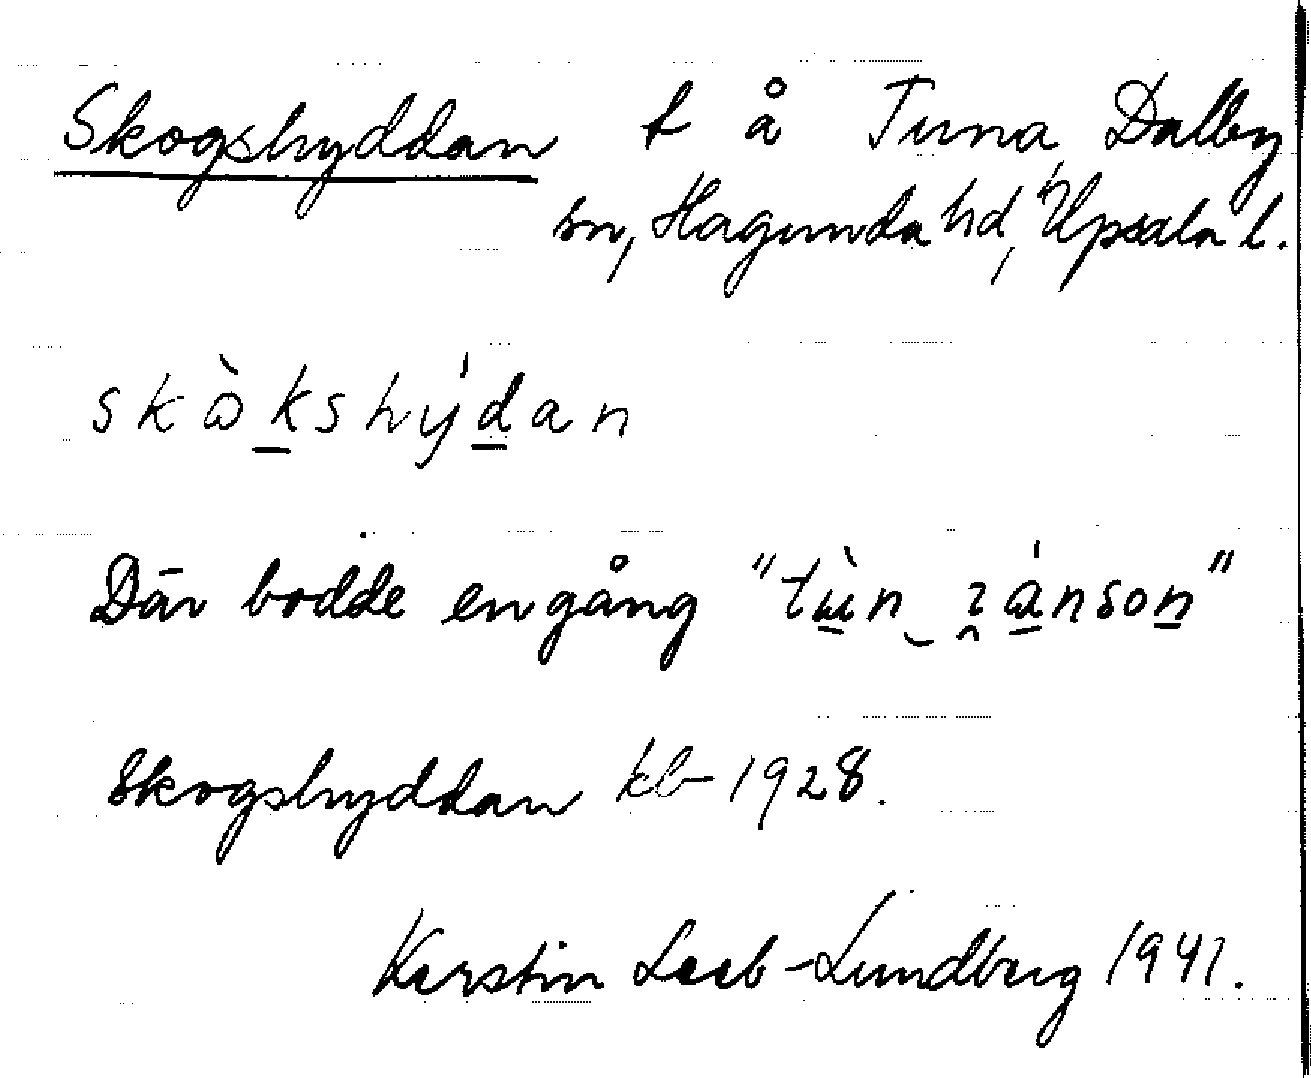 Skogshyddan t å Tuna, Dalby
sn, Hagunda hd, Upsala l.
skɷ̀k̲shý́d̲an
Där bodde engång "tù̲n‿ɿá̲nson̲"
Skogshyddan kb 1928.
Kerstin Leeb-Lundberg 1941.